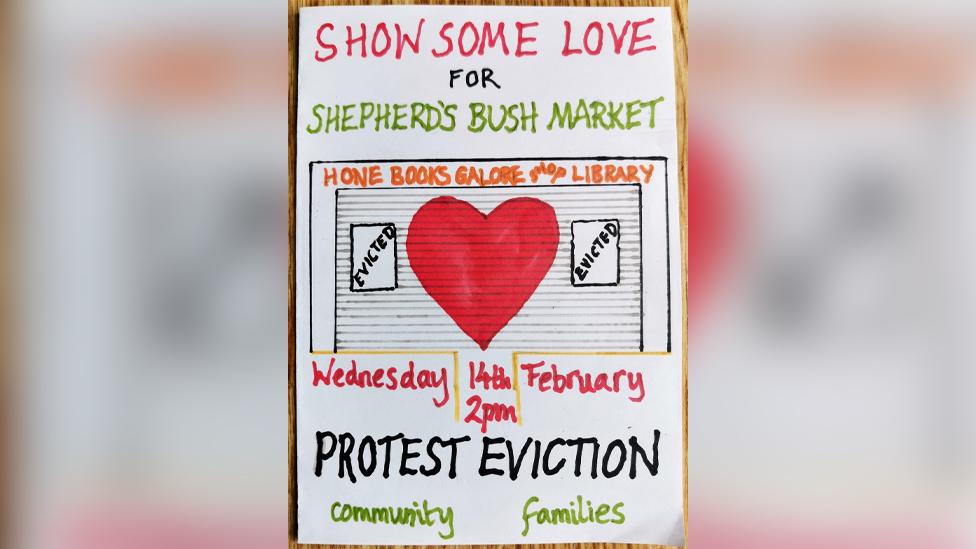 SHOW SOME LOVE
FOR
SHEPHERD'S BUSH MARKET
HONE BOOKS GALORE SHOP LIBRARY
EVICTED
EVICTED
Wednesday 14th February
2pm
PROTEST EVICTION
community families